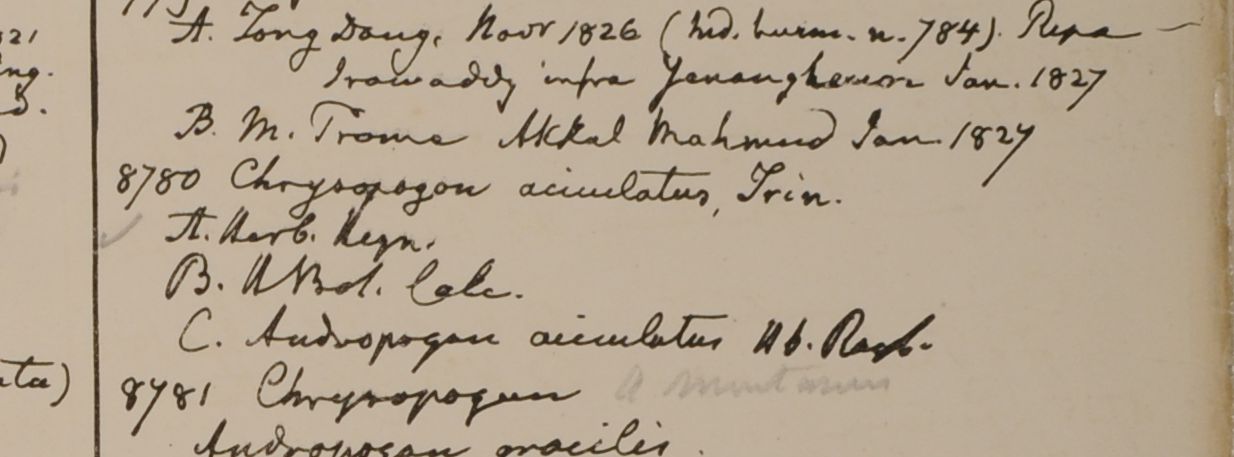 21
ng.
A. Tong Dong, Novr 1826 (hid. burm. n. 784). Ripa
Irawaddy infra Yenangheum Jan. 1827
B. M. Prome Akkal Mahmud Jan. 1827
8780 Chrysopogon aciculatus, Trin.
A. Herb. Heyn.
B. HBot. Calc.
C. Andropogon aciculatus Hb. Roxb.
ata)
8781 Chrysopogon A montanus
Andropogon gracilis.